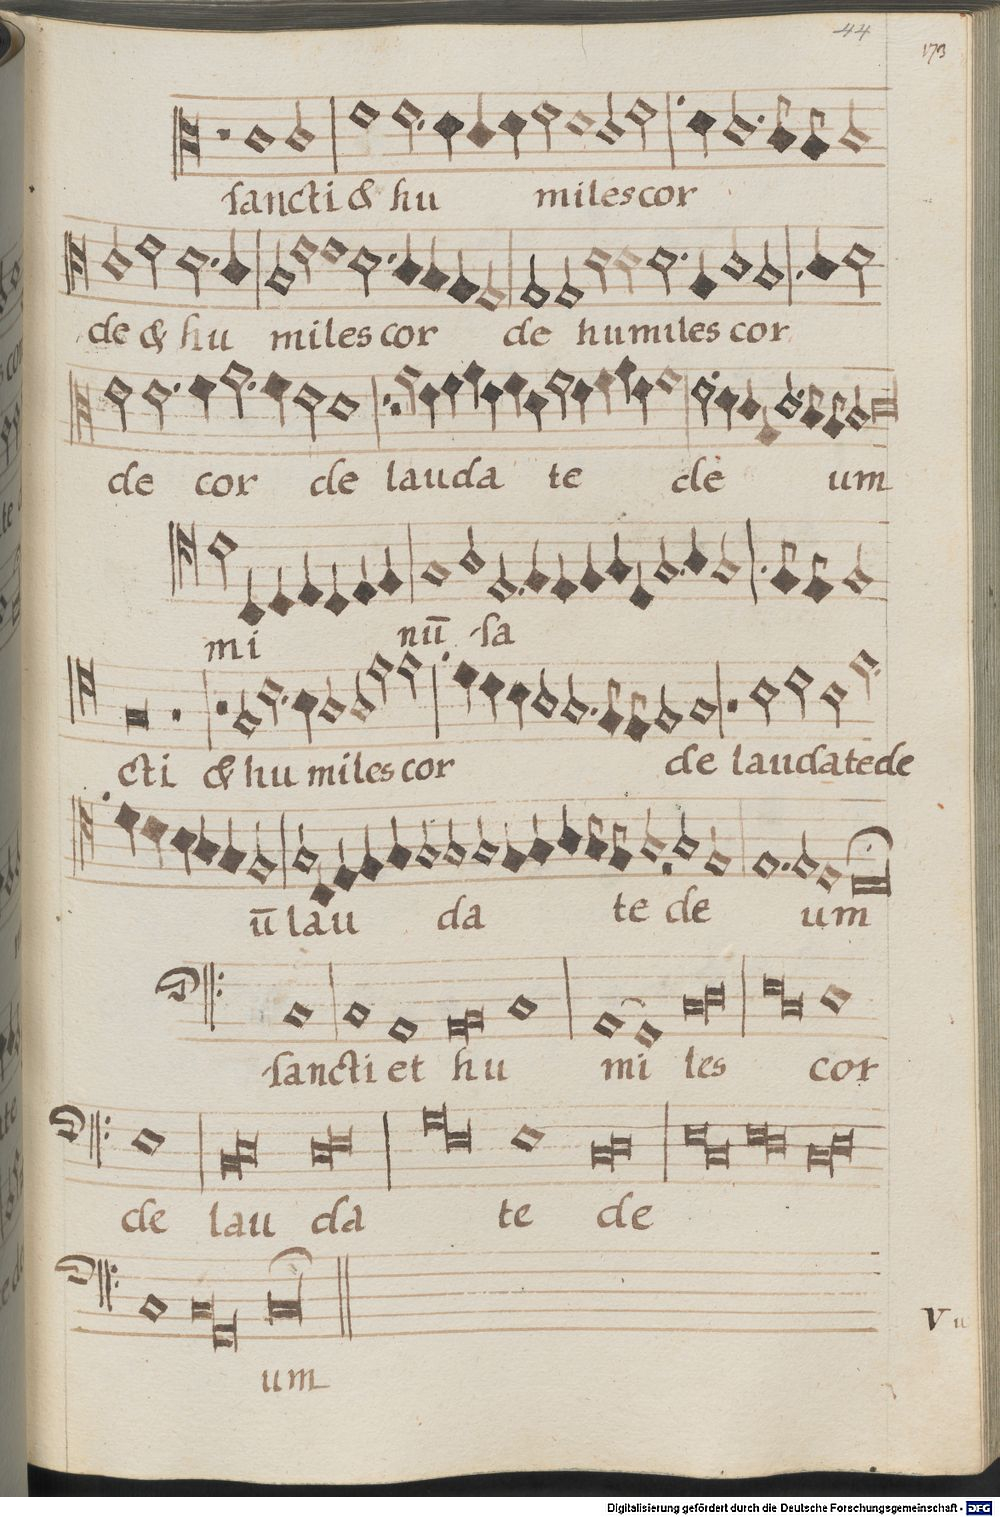 44
173
sancti & hu miles cor
de & hu miles cor de humiles cor
de cor de lauda te de um
mi nū sa
cti & hu miles cor de laudate de
ū lau da te de um
sancti et hu mi les cor
de lau da te de
V u
um
Digitalisierung gefördert durch die Deutsche Forschungsgemeinschaft - DFG